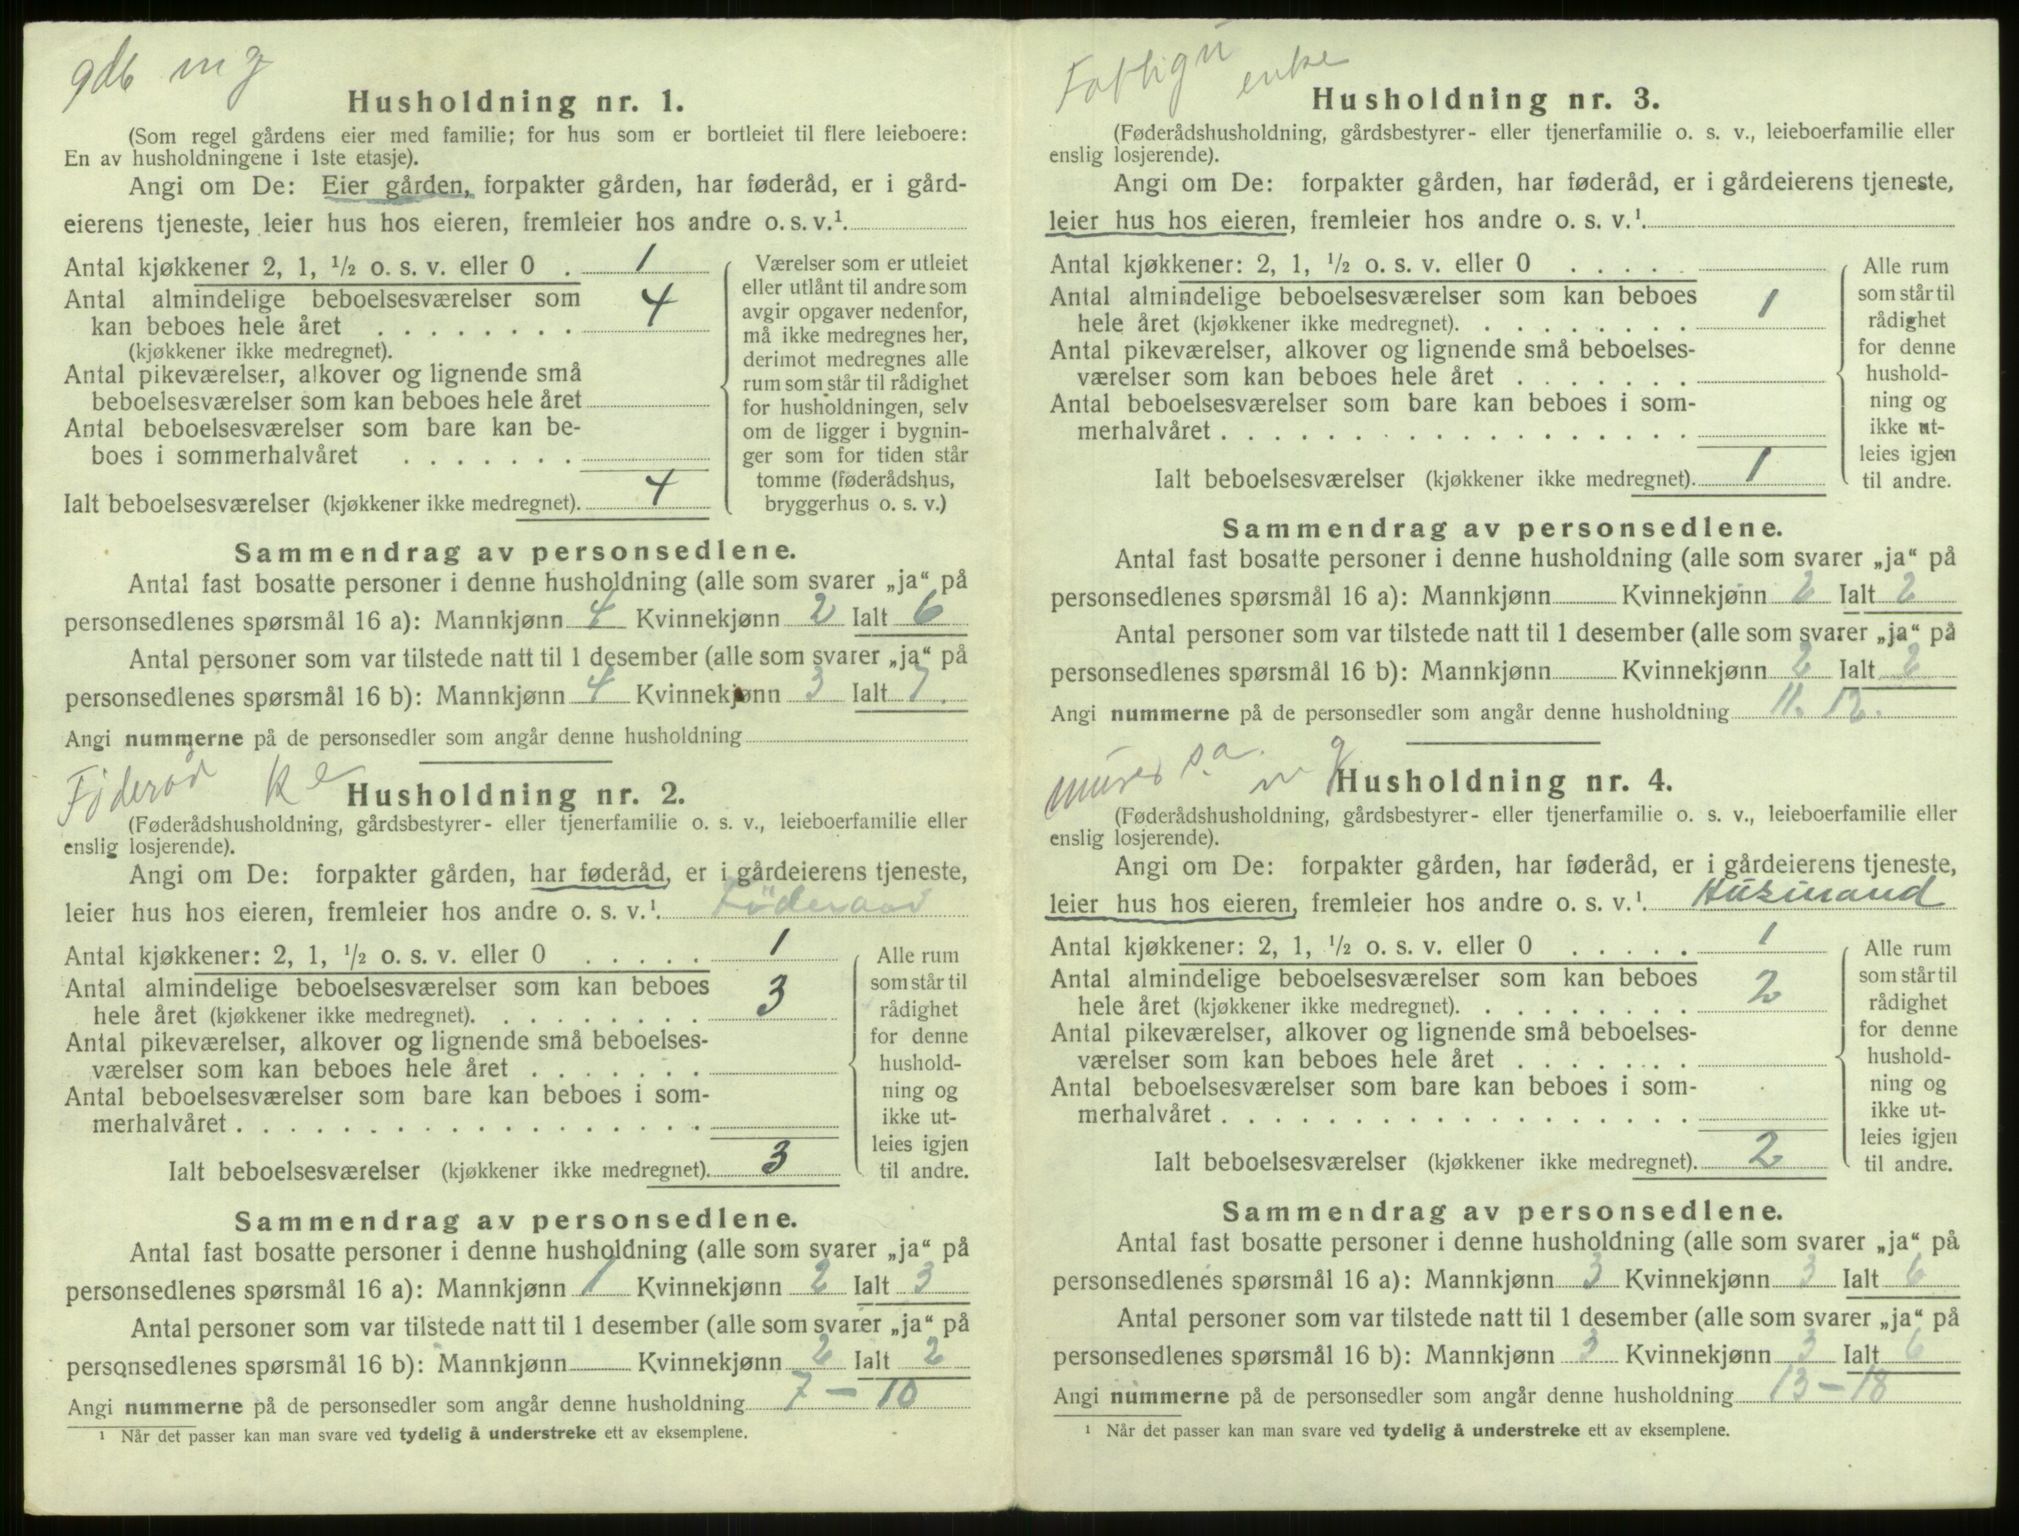 gdb m g
Husholdning nr. 1.
(Som regel gårdens eier med familie; for hus som er bortleiet til flere leieboere:
En av husholdningene i 1ste etasje).
Angi om De: Eier gården, forpakter gården, har føderåd, er i gård-
eierens tjeneste, leier hus hos eieren, fremleier hos andre o. s. v.¹.
Antal kjøkkener 2, 1, ½ o. s. v. eller 0 . 1
Antal almindelige beboelsesværelser som
kan beboes hele året . . . . . . . . 4
(kjøkkener ikke medregnet).
Antal pikeværelser, alkover og lignende små
beboelsesværelser som kan beboes hele året
Antal beboelsesværelser som bare kan be-
boes i sommerhalvåret . . . . . . .
Ialt beboelsesværelser (kjøkkener ikke medregnet). 4
Værelser som er utleiet
eller utlånt til andre som
avgir opgaver nedenfor,
må ikke medregnes her,
derimot medregnes alle
rum som står til rådighet
for husholdningen, selv
om de ligger i bygnin-
ger som for tiden står
tomme (føderådshus,
bryggerhus o. s. v.)
Sammendrag av personsedlene.
Antal fast bosatte personer i denne husholdning (alle som svarer „ja“ på
personsedlenes spørsmål 16 a): Mannkjønn 4 Kvinnekjønn 2 Ialt 6
Antal personer som var tilstede natt til 1 desember (alle som svarer „ja“ på
personsedlenes spørsmål 16 b): Mannkjønn 4 Kvinnekjønn 3 Ialt 7.
Angi nummerne på de personsedler som angår denne husholdning
Føderåd ke
Husholdning nr. 2.
(Føderådshusholdning, gårdsbestyrer- eller tjenerfamilie o. s. v., leieboerfamilie eller
enslig losjerende).
Angi om De: forpakter gården, har føderåd, er i gårdeierens tjeneste,
leier hus hos eieren, fremleier hos andre o. s. v.¹. Föderaad
Antal kjøkkener: 2, 1, ½ o. s. v. eller 0 . . . . . 1
Antal almindelige beboelsesværelser som kan beboes
hele året (kjøkkener ikke medregnet). . . . . . . . . 3
Antal pikeværelser, alkover og lignende små beboelses-
værelser som kan beboes hele året . . . . . . .
Antal beboelsesværelser som bare kan beboes i som-
merhalvåret . . . . . . . . . . . . . . . . . .
Ialt beboelsesværelser (kjøkkener ikke medregnet). 3
Alle rum
som står til
rådighet
for denne
hushold-
ning og
ikke ut-
leies igjen
til andre.
Sammendrag av personsedlene.
Antal fast bosatte personer i denne husholdning (alle som svarer „ja“ på
personsedlenes spørsmål 16 a): Mannkjønn 1 Kvinnekjønn 2 Ialt 3
Antal personer som var tilstede natt til 1 desember (alle som svarer „ja“ på
personsedlenes spørsmål 16 b): Mannkjønn Kvinnekjønn 2 Ialt 2
Angi nummerne på de personsedler som angår denne husholdning 7 – 10
¹ Når det passer kan man svare ved tydelig å understreke ett av eksemplene.
enke
Husholdning nr. 3.
(Føderådshusholdning, gårdsbestyrer- eller tjenerfamilie o. s. v., leieboerfamilie eller
enslig losjerende).
Angi om De: forpakter gården, har føderåd, er i gårdeierens tjeneste,
leier hus hos eieren, fremleier hos andre o. s. v.¹.
Antal kjøkkener: 2, 1, ½ o. s. v. eller 0 . . . . .
Antal almindelige beboelsesværelser som kan beboes
hele året (kjøkkener ikke medregnet). . . . . . . . . 1
Antal pikeværelser, alkover og lignende små beboelses-
værelser som kan beboes hele året . . . . . . .
Antal beboelsesværelser som bare kan beboes i som-
merhalvåret . . . . . . . . . . . . . . . . . .
Ialt beboelsesværelser (kjøkkener ikke medregnet). 1
Alle rum
som står til
rådighet
for denne
hushold-
ning og
ikke ut-
leies igjen
til andre.
Sammendrag av personsedlene.
Antal fast bosatte personer i denne husholdning (alle som svarer „ja“ på
personsedlenes spørsmål 16 a): Mannkjønn Kvinnekjønn 2 Ialt 2
Antal personer som var tilstede natt til 1 desember (alle som svarer „ja“ på
personsedlenes spørsmål 16 b): Mannkjønn Kvinnekjønn 2 Ialt 2
Angi nummerne på de personsedler som angår denne husholdning 11. 12.
murer s.a. m g
Husholdning nr. 4.
(Føderådshusholdning, gårdsbestyrer- eller tjenerfamilie o. s. v., leieboerfamilie eller
enslig losjerende).
Angi om De: forpakter gården, har føderåd, er i gårdeierens tjeneste,
leier hus hos eieren, fremleier hos andre o. s. v.¹. Husmand
Antal kjøkkener: 2, 1, ½ o. s. v. eller 0 . . . . . 1
Antal almindelige beboelsesværelser som kan beboes
hele året (kjøkkener ikke medregnet). . . . . . . . . 2
Antal pikeværelser, alkover og lignende små beboelses-
værelser som kan beboes hele året . . . . . . .
Antal beboelsesværelser som bare kan beboes i som-
merhalvåret . . . . . . . . . . . . . . . . . .
Ialt beboelsesværelser (kjøkkener ikke medregnet). 2
Alle rum
som står til
rådighet
for denne
hushold-
ning og
ikke ut-
leies igjen
til andre.
Sammendrag av personsedlene.
Antal fast bosatte personer i denne husholdning (alle som svarer „ja“ på
personsedlenes spørsmål 16 a): Mannkjønn 3 Kvinnekjønn 3 Ialt 6
Antal personer som var tilstede natt til 1 desember (alle som svarer „ja“ på
personsedlenes spørsmål 16 b): Mannkjønn 3 Kvinnekjønn 3 Ialt 6
Angi nummerne på de personsedler som angår denne husholdning 13 – 18
¹ Når det passer kan man svare ved tydelig å understreke ett av eksemplene.